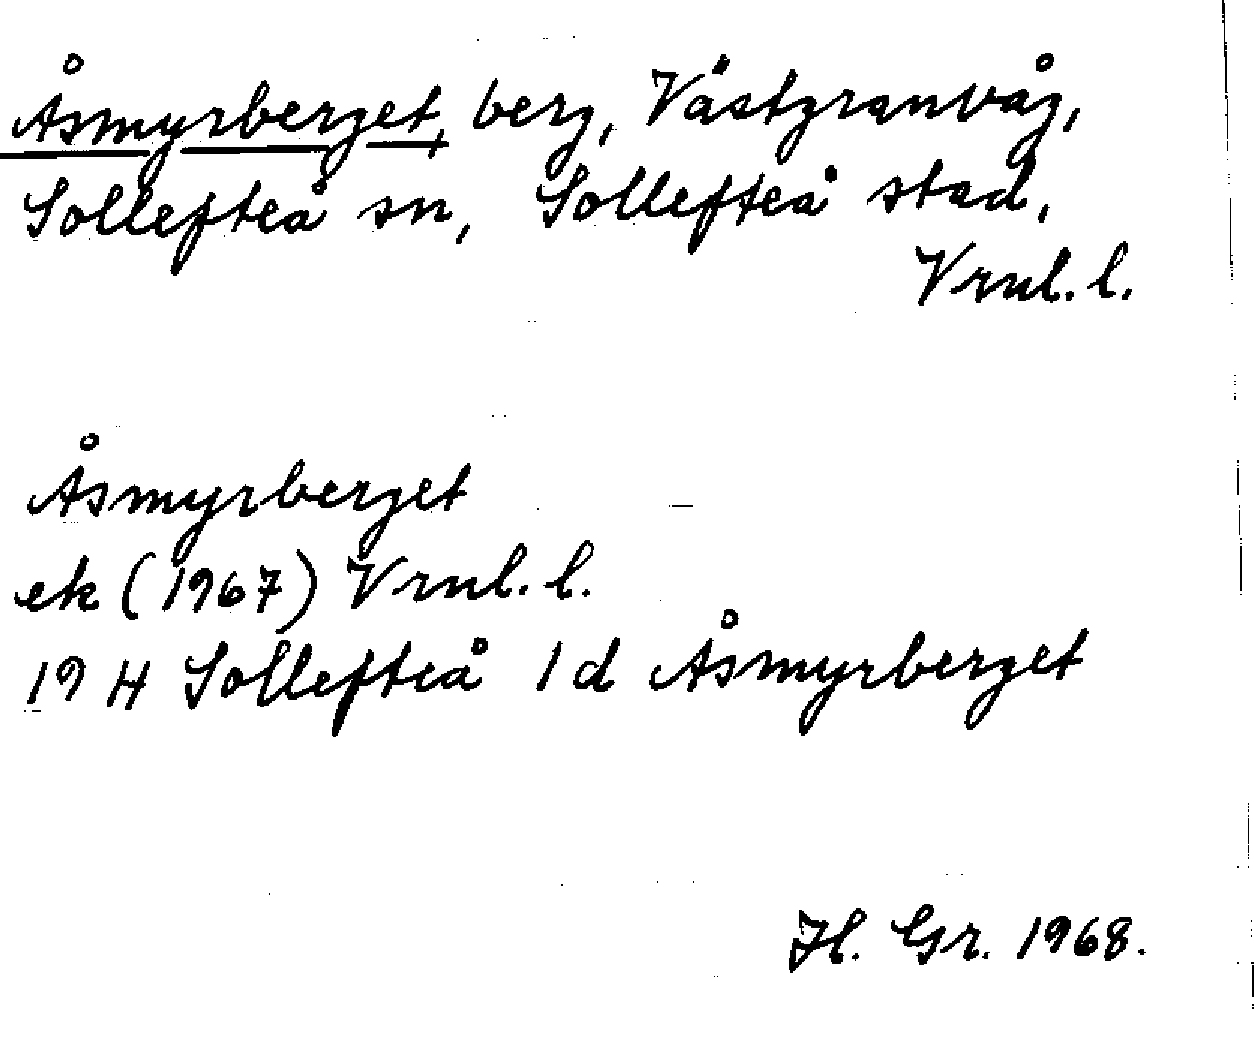 Åsmyrberget, berg, Västgranvåg,
Sollefteå sn, Sollefteå stad,
Vrnl. l.
Åsmyrberget
ek (1967) Vrnl. l.
19 H Sollefteå 1 d Åsmyrberget
H. Gr. 1968.